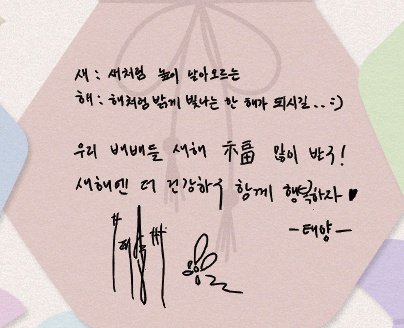 새 : 새처럼 높이 날아오르는
해 : 해처럼 밝게 빛나는 한 해가 되시길..:)
우리 배배들 새해 福 많이 받구!
새해엔 더 건강하구 함께 행복하자♥
-태양-